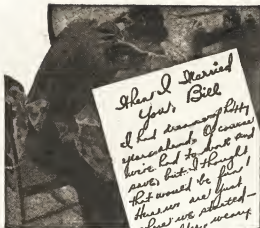 When I Married
You, Bill
I had dreams of happy
years ahead. Of course
we've had to work and
save, but I thought
that would be fun!
Here we are just
where we started—
weary